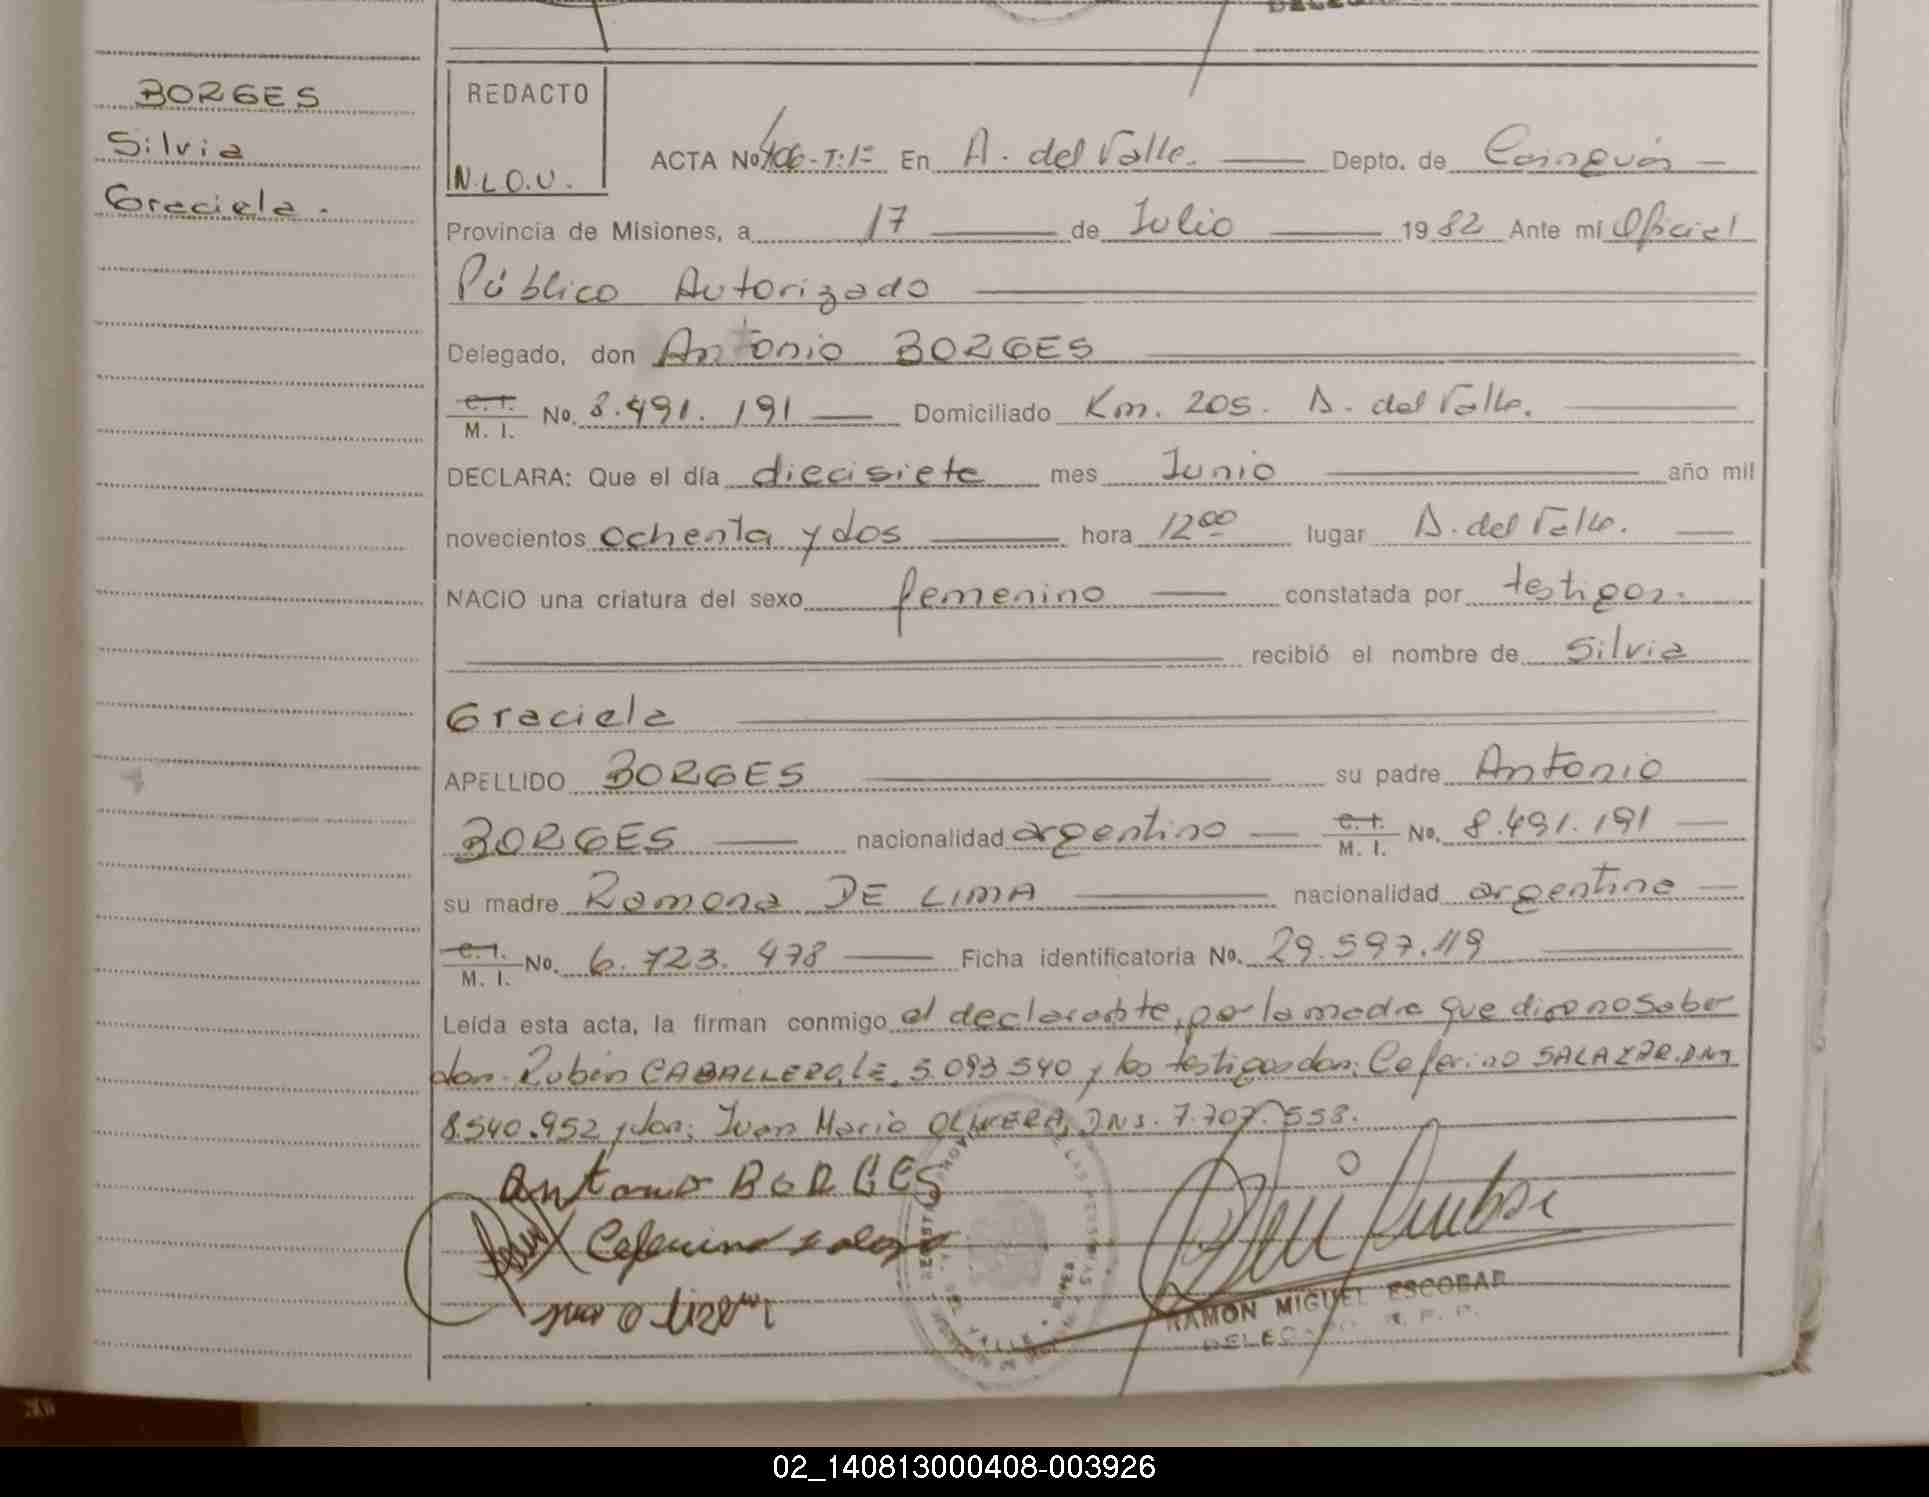 BORGES
Silvia
Graciela.
REDACTO
N.L.O.U.
ACTA No 406-T:1º En A. del Valle. Depto. de Cainguás
Provincia de Misiones, a 17 de Julio 1982 Ante mí Oficial
Público Autorizado
Delegado, don Antonio BORGES
C. I. M. I. No. 8.491.191 Domiciliado Km. 205. A. del Valle.
DECLARA: Que el día diecisiete mes Junio año mil
novecientos ochenta y dos hora 1200 lugar A. del Valle.
NACIO una criatura del sexo femenino constatada por testigos.
recibió el nombre de Silvia
Graciela
APELLIDO BORGES su padre Antonio
BORGES nacionalidad argentino C. I. M. I. No. 8.491.191
su madre Ramona DE LIMA nacionalidad argentina
C. I. M. I. No. 6.723.478 Ficha identificatoria No. 29.597.119
Leída esta acta, la firman conmigo el declarante, por la madre que dijo no saber
don Rubén CABALLERO, LE. 5.093 540 y los testigos don: Ceferino SALAZAR. DNI
8.540.952 y don: Juan Mario OLIVERA, DNI. 7.707.558.
Antonio BORGES
Ceferino
RAMON MIGUEL ESCOBAR
DELEGADO R. P. P.
02_140813000408-003926